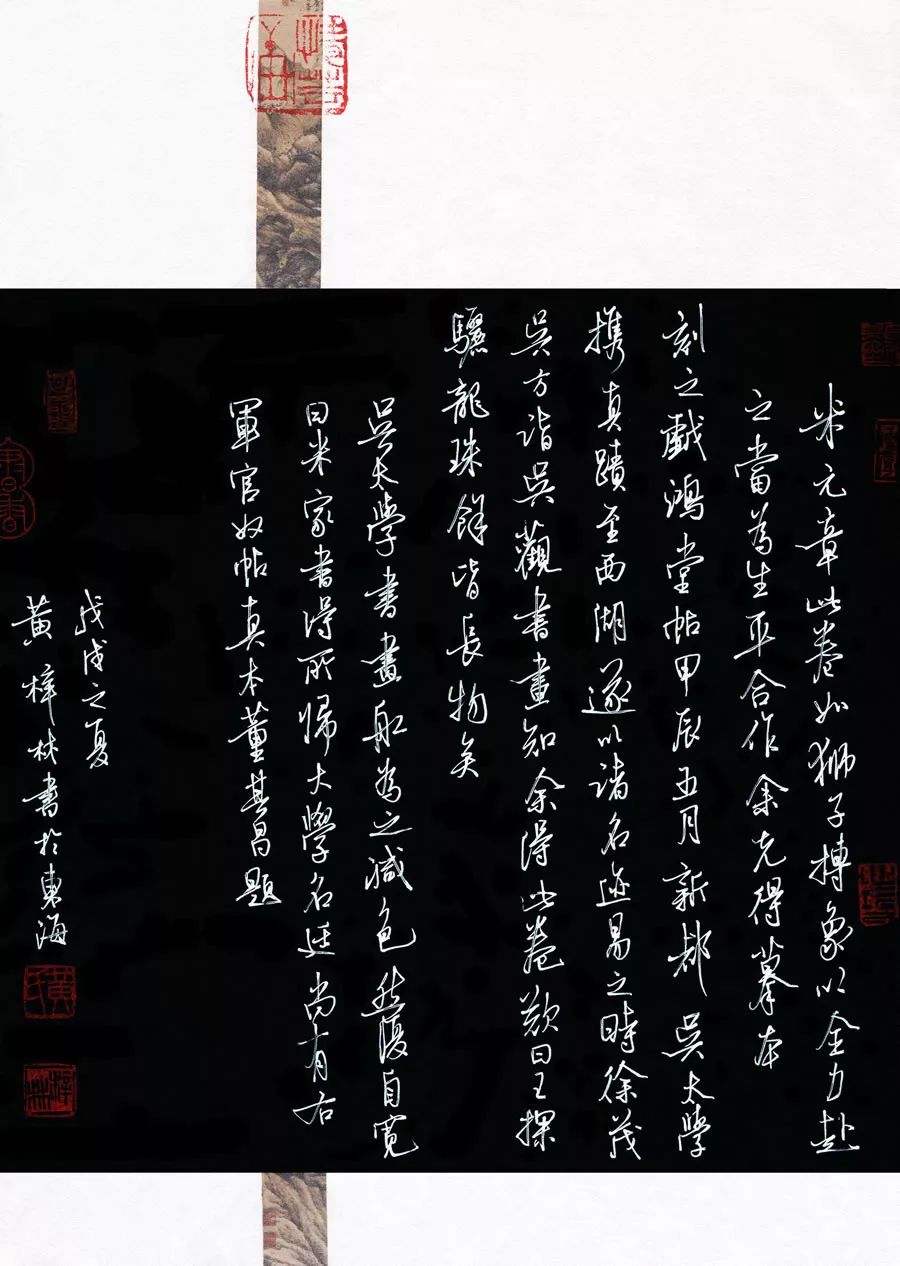 米元章此卷如狮子搏象以全力赴
之當為生平合作余先得摹本
刻之戲鴻堂帖甲辰五月新都吳太學
携真蹟至西湖遂以諸名迹易之時徐茂
吳方詣吳觀書畫知余得此卷歎曰已探
驪龍珠餘皆長物矣
吳太學書畫船為之減色然復自寬
曰米家書得所歸大學名廷尚有右
軍官奴帖真本董其昌題
戊戌之夏
黄梓林書於東海